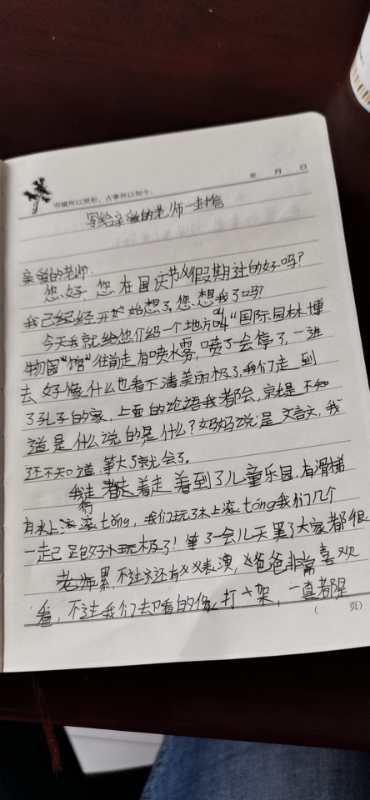 年 月 日
可借所以照形,古事所以知今。
写给亲爱的老师一封信
亲爱的老师:
您好,您在国庆节假期过的好吗?
我已经经开始想了您,您想我了吗?
今天我就给您介绍一个地方叫“国际园林博
物园“馆”往前走有喷水雾,喷了会停了,一进
去好像什么也看不清美丽极了,我们走到
了孔子的家,上面的论语我都会,就是不知
道是什么说的是什么?妈妈说:是文言文,我
还不知道,等大了就会了。
我走着走着走看到了儿童乐园,有滑梯
有水上滚tǒng,我们玩了水上滚tǒng我们几个
一走己足的好玩极了!等了一会儿天黑了大家都很
老师累,不过还有表演,爸爸非常喜欢
看,不过我们去打架,一直都是
( 页)